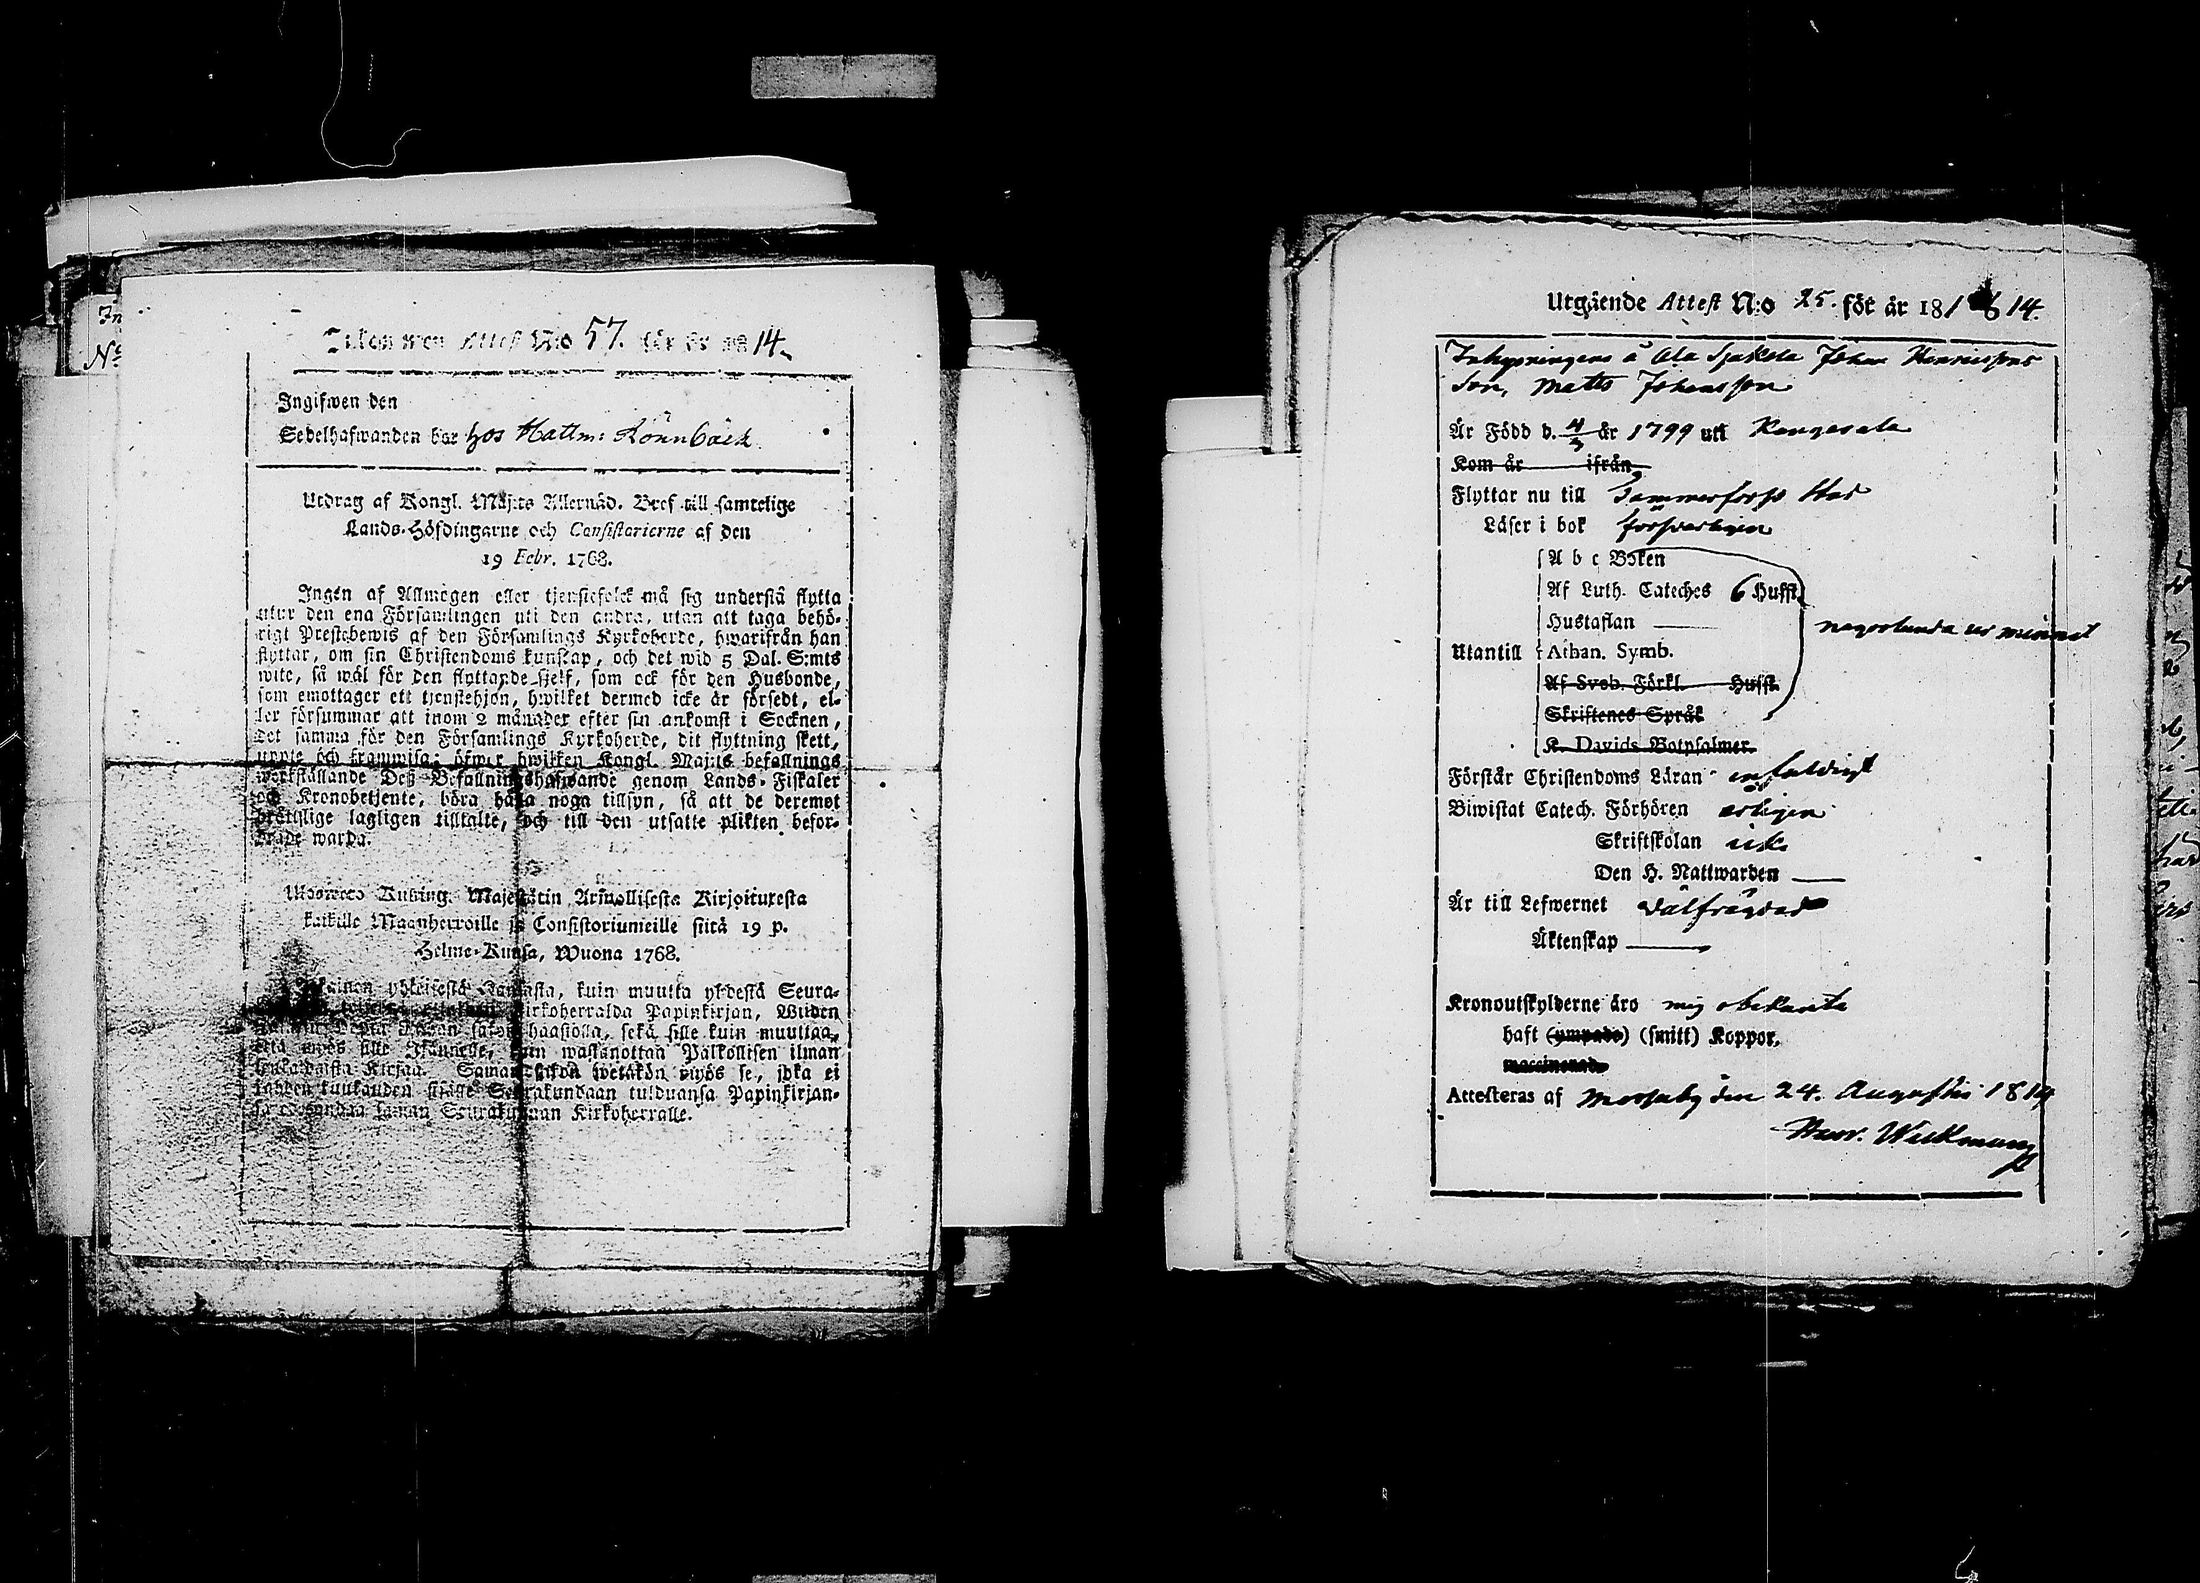 Attest N:o 57. för år 1814.
Ingifwen den
Sedelhafwanden bor hos Hattm: Lönnbäck
Utdrag af Kongl. Maj:ts Allernåd. Bref till samtelige
Lands-Höfdingarne och Consistorierne af den
19 Febr. 1768.
Ingen af Allmogen eller tjenstefolck må sig understå flytta
utur den ena Församlingen uti den andra, utan att taga behö-
rigt Prestebewis af den Församlings Kyrkoherde, hwarifrån han
flyttar, om sin Christendoms kunskap, och det wid 5 Dal. S:mts
wite, så wäl för den flyttande sjelf, som ock för den Husbonde,
som emottager ett tjenstehjon, hwilket dermed icke är försedt, el-
ler försummar att inom 2 månader efter sin ankomst i Socknen,
det samma för den Församlings Kyrkoherde, dit flyttning skett,
uppte och framwisa; öfwer hwilken Kongl. Maj:ts befallnings
werkställande Deß Befallningshafwande genom Lands-Fiskaler
och Kronobetjente, böra hafa noga tillsyn, så att de deremot
brottslige lagligen tilltalte, och till den utsatte plikten befor-
drade warda.
Ulosweto Kuning. Majestätin Armollisesta Kirjoituresta
kaikille Maanherroille ja Consistoriumeille siitä 19 p.
Helme-Kuusa, Wuona 1768.
yhteisestä Kansasta, kuin muutta yhdestä Seura-
Kirkoherralda Papinkirjan, Wiiden
sakon haastolla, sekä sille kuin muuttaa,
että myös sille Isännelle, kuin wastanottaa Palkollisen ilman
senkaldaista Kirjaa. Saman sakon wetäkön myös se, joka ei
kahden kuukauden sisälle Seurakundaan tulduansa Papinkirjan-
sa saman Seurakunnan Kirkoherralle.
Utgående Attest N:o 25. för år 1814.
Inhysningens å Ala Sjukola Johan Henricssons
Son, Matts Johansson
Är Född d. 4/3 år 1799 uti Kangasala
Kom år ifrån
Flyttar nu till Tammerfors Stad
Läser i bok försvarligen
A b c Boken
Af Luth. Cateches 6 Hufst.
Hustaflan
någorlunda ur minnet
Utantill Athan. Symb.
Af Sveb. Förkl. Hufst.
Skriftenes Språk
K. Davids Botpsalmer.
Förstår Christendoms Läran enfaldigt
Biwistat Catech. Förhören årligen
Skriftskolan ick
Den H. Nattwarden
Är till Lefwernet välfrägdad
Äktenskap
Kronoutskylderne äro mig obekanta
haft (ympade) (smitt) Koppor.
vaccinerad
Attesteras af Morsaby den 24. Augusti 1814